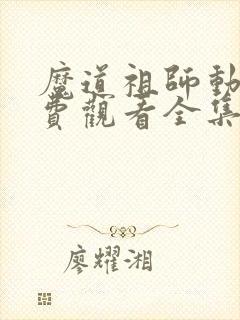 魔道祖師動
費觀看全集
廖耀湘